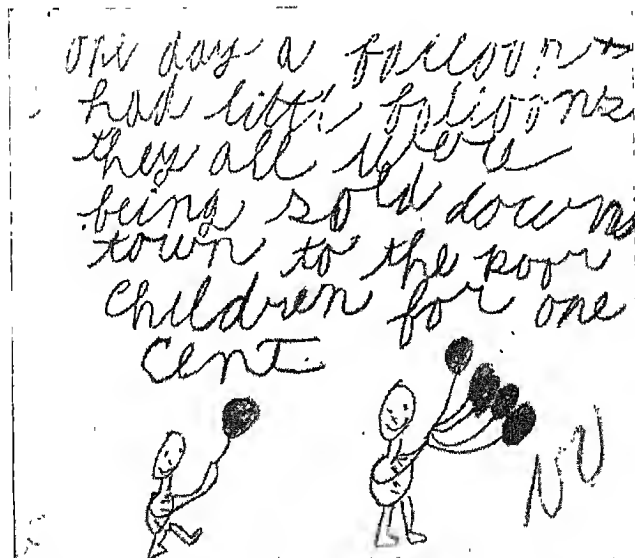 one day a balloon
had little baloons
they all were
being sold down
town to the poor
children for one
cent.
NU